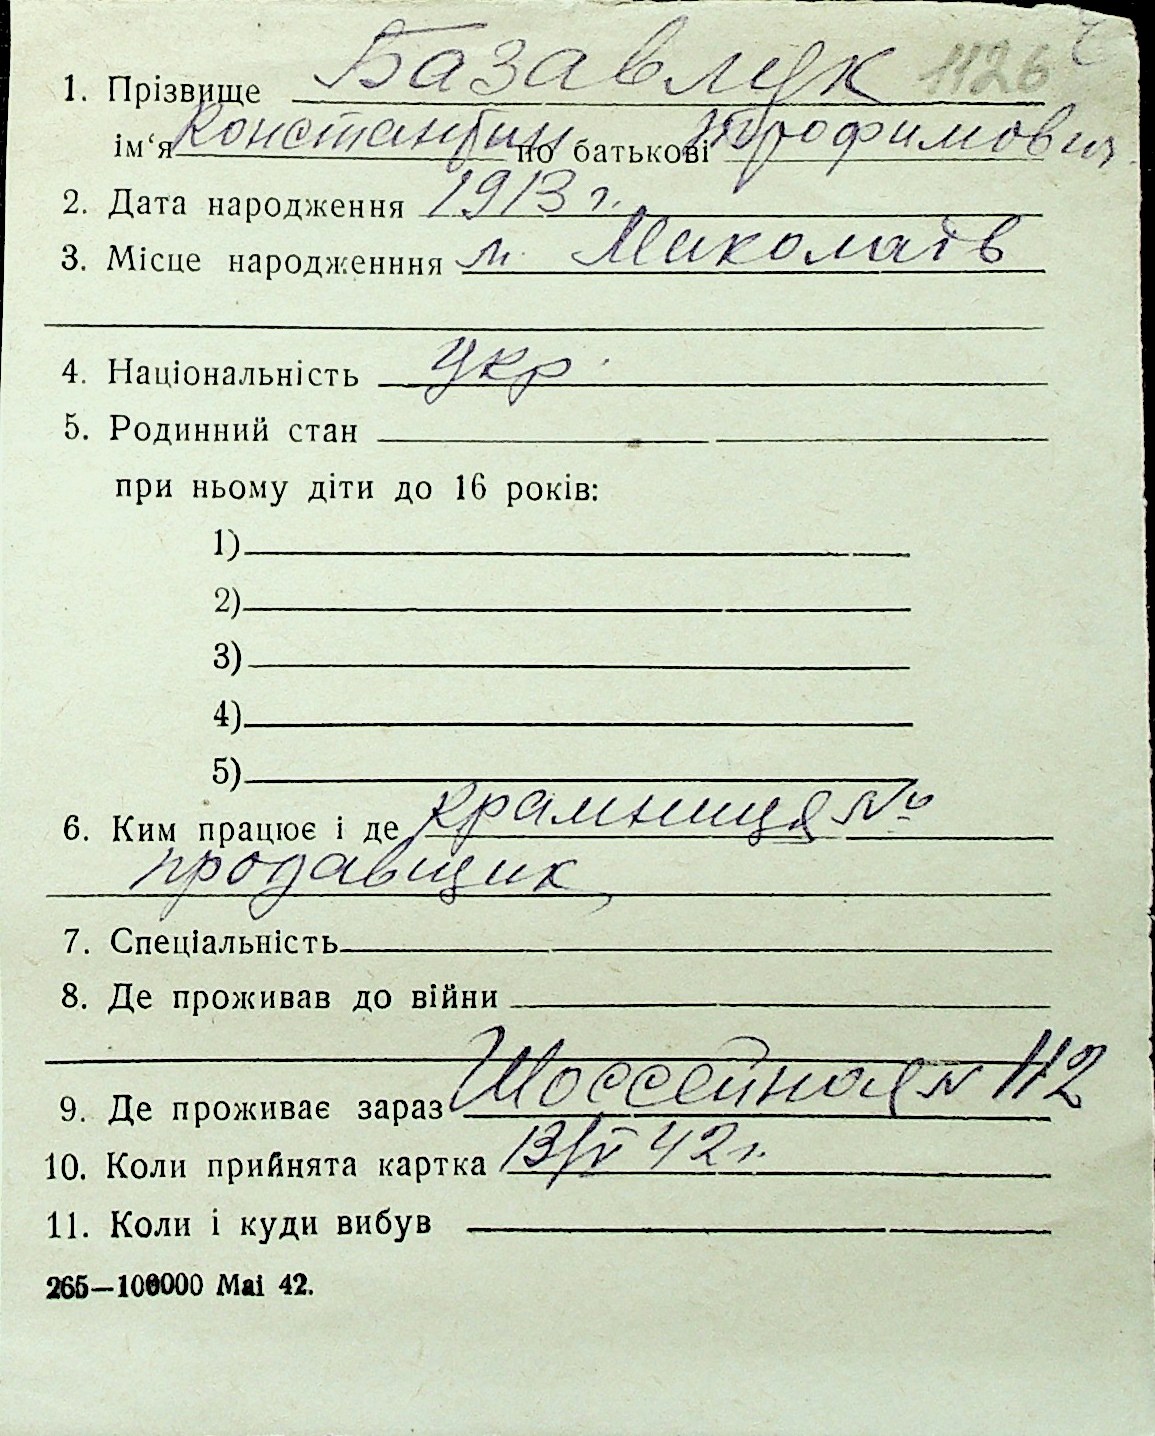 1. Прізвище Базавлук 1126
ім‘я Константин по батькові Трофимович
2. Дата народження 1913 г.
3. Місце народженння м. Миколаїв
4. Національність Укр.
5. Родинний стан
при ньому діти до 16 років:
1)
2)
3)
4)
5)
6. Ким працює і де крамниця №
продавщик,
7. Спеціальність
8. Де проживав до війни
9. Де проживає зараз Шоссейная № 112
10. Коли прийнята картка 13/V 42 г.
11. Коли і куди вибув
265—100000 Mai 42.